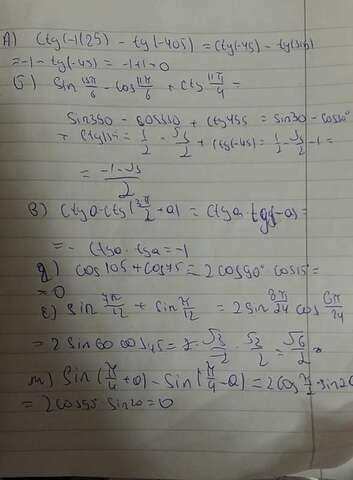 А) ctg(-1125) - tg(-405) = ctg(-45) - tg(315)
= -1 - tg(-45) = -1+1 = 0
Б) sin 13π/6 - cos 11π/6 + ctg 11π/4 =
sin 390 - cos 330 + ctg 495 = sin 30 - cos 30°
+ ctg 135 = 1/2 - √3/2 + ctg(-45) = 1/2 - √3/2 - 1 =
= (-1-√3)/2
в) ctg a · ctg(3π/2 + a) = ctg a · tg(-a) =
= - ctg a · tg a = -1
д) cos 105 + cos 75 = 2cos 90° · cos 15° =
= 0
е) sin 7π/12 + sin π/12 = 2 sin 8π/24 cos 6π/24
= 2 sin 60 cos 45 = 2 · √3/2 · √2/2 = √6/2
ж) sin(π/4 + a) - sin(π/4 - a) = 2cos π/2 · sin 2a
= 2cos 95 · sin 2a = 0